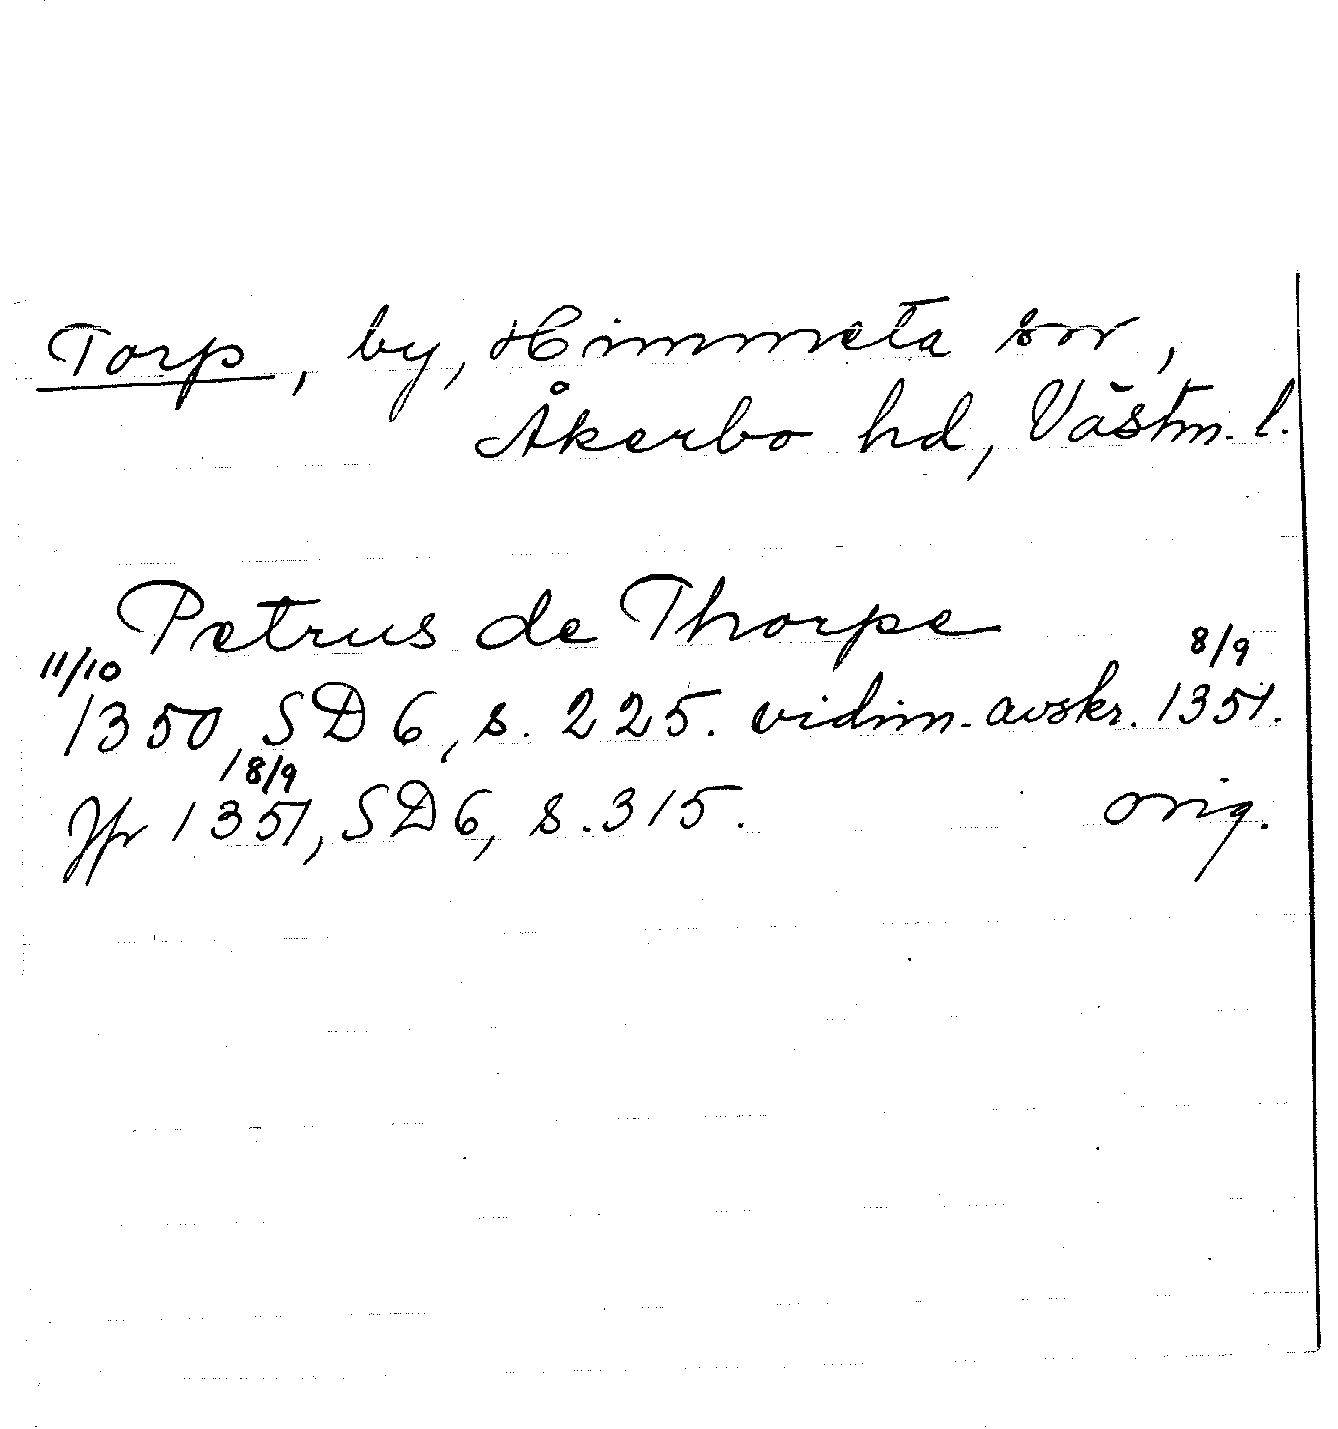 Torp, by, Himmeta snr,
Åkerbo hd, Västm. l.
Petrus de Thorpe
11/10 8/9
1350, SD 6, s. 225. vidim. avskr. 1351.
18/9
Jfr 1351, SD 6, s. 315. orig.